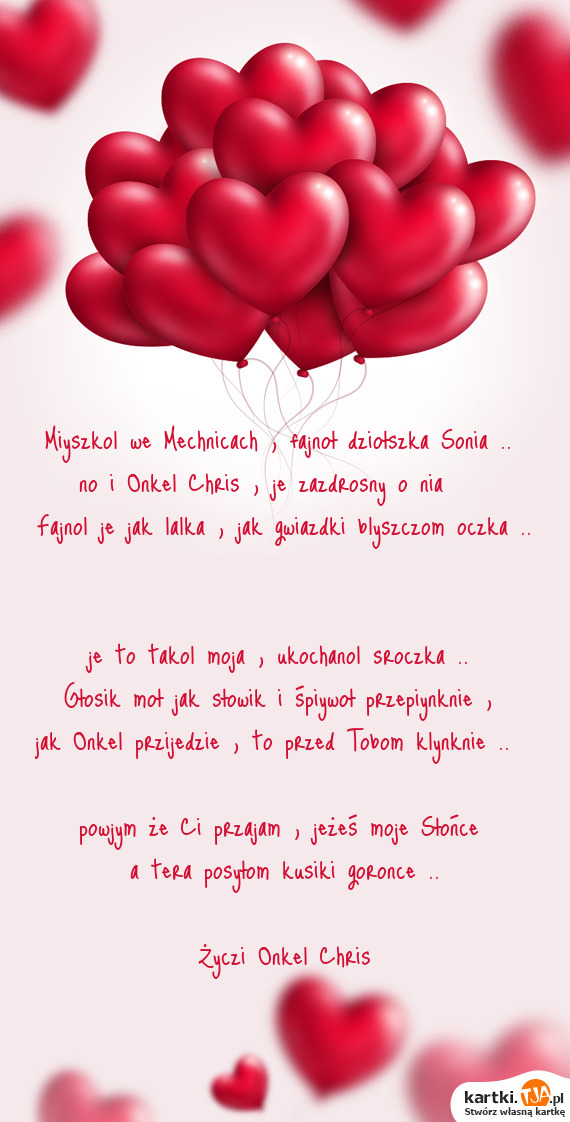 Miyszkol we Mechnicach , fajnoł dziołszka Sonia ..
no i Onkel Chris , je zazdrosny o nia
fajnol je jak lalka , jak gwiazdki blyszczom oczka ..
je to takol moja , ukochanol sroczka ..
Głosik moł jak słowik i śpiywoł przepiynknie ,
jak Onkel przijedzie , to przed Tobom klynknie ..
powjym że Ci przajam , jeżeś moje Słońce
a tera posyłom kusiki goronce ..
Życzi Onkel Chris
kartki.TJA.pl
Stwórz własną kartkę